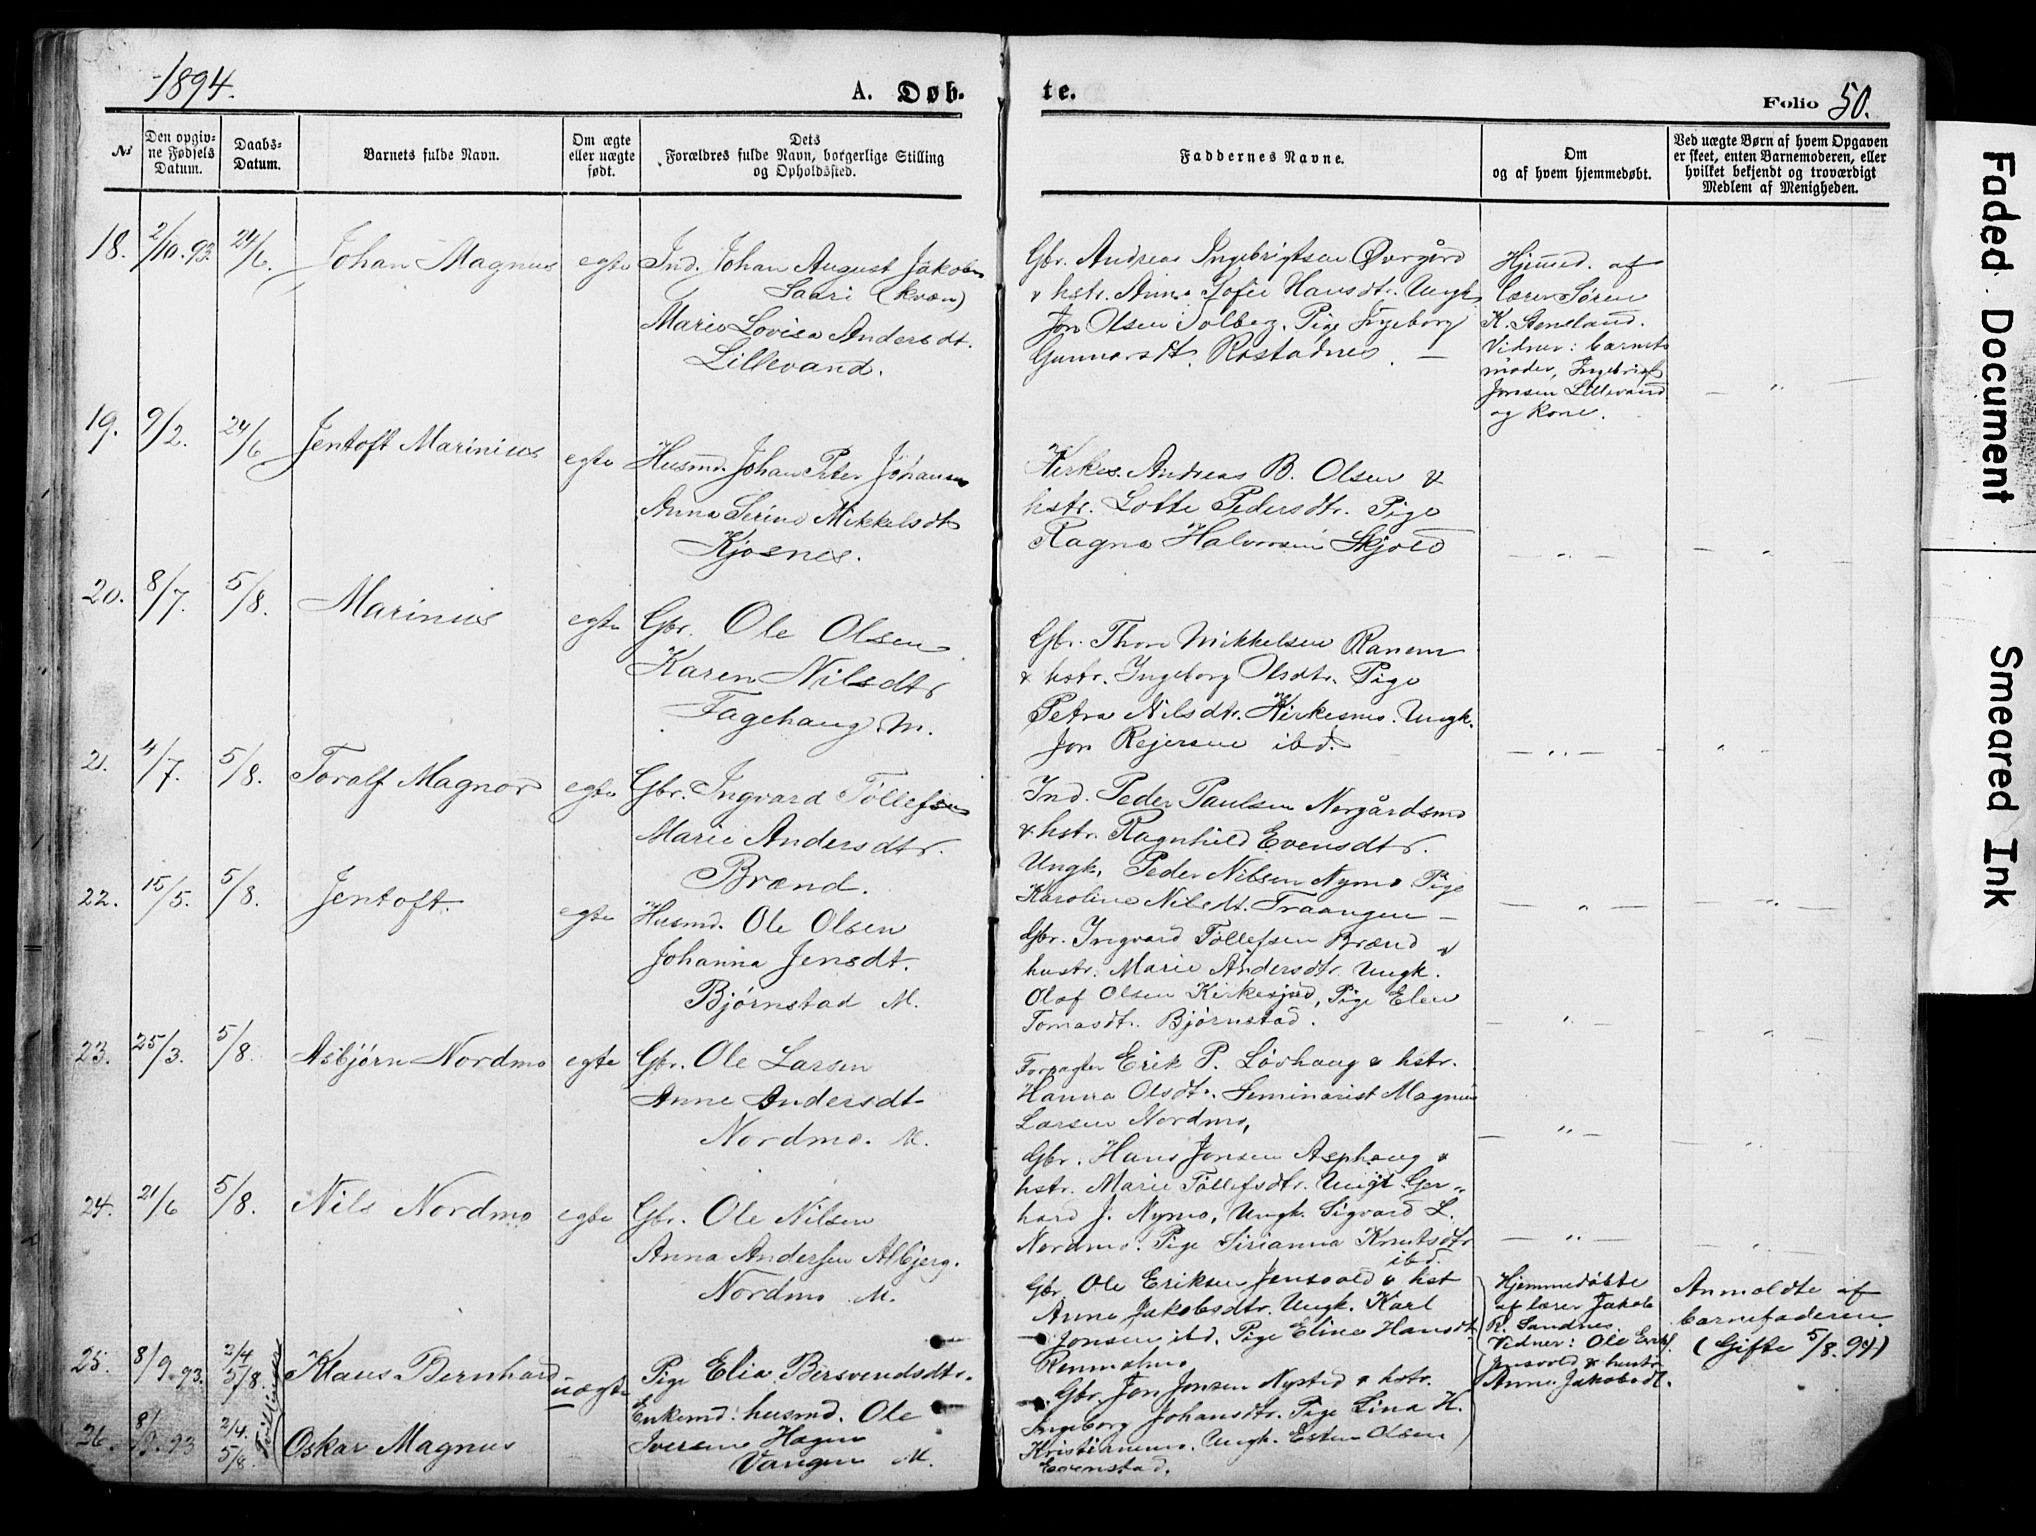 1894.
A. Døb-
te.
Folio 50.
No
Den opgiv-
ne Fødsels
Datum.
Daabs-
Datum.
Barnets fulde Navn.
Om ægte
eller uægte
født.
Dets
Forældres fulde Navn, borgerlige Stilling
og Opholdssted.
Faddernes Navne.
Om
og af hvem hjemmedøbt.
Ved uægte Børn af hvem Opgaven
er skeet, enten Barnemoderen, eller
hvilket bekjendt og troværdigt
Medlem af Menigheden.
18. 2/10.93. 24/6. Johan Magnus egte Ind. Johan August Jakobs
Saari (kvæn)
Marie Lovisa Andersdt.
Lillevand.
Gbr. Andreas Ingebrigtsen Øvrgård
& hstr. Anna Sofie Hansdtr. Ungk.
Jon Olsen Solberg. Pige Ingeborg
Gunnarsdt. Rostadnes. —
Hjemd. af
lærer Søren
K. Stensland.
Vidner: barnets
moder, Ingebrigt
Jonsen Lillevand
og kone.
— „ —
19. 9/2. 24/6 Jentoft Marinius egte Husmd. Johan Peter Johansen
Anna Serine Mikkelsdt
Kjosnes.
Kirkes. Andreas B. Olsen &
hstr. Lotte Pedersdtr. Pige
Ragna Halvorsen Skjold
— „ — — „
20. 8/7. 5/8. Marinius egte Gbr. Ole Olsen
Karen Nilsdtr
Fagehaug M.
Gbr. Thore Mikkelsen Ranem
& hstr. Ingeborg Olsdtr. Pige
Petra Nilsdtr. Kirkesmo. Ungk.
Jon Rejersen ibd.
— „ — „ —
21. 4/7. 5/8. Toralf Magnor egte Gbr. Ingvard Tollefsen
Marie Andersdtr.
Brænd.
Ind. Peder Paulsen Norgårdsmo
& hstr. Ragnhild Evensdtr.
Ungk. Peder Nilsen Nymo Pige
Karoline Nilsdt. Traangen —
— „ — — „ —
22. 15/5. 5/8. Jentoft. egte Husmd. Ole Olsen
Johanna Jensdt.
Bjørnstad M.
Gbr. Ingvard Tollefsen Brænd &
hustr. Marie Andersdtr. Ungk.
Olaf Olsen Kirkesjord, Pige Elen
Tomasdtr. Bjørnstad.
— „ — „
23. 25/3. 5/8. Asbjørn Nordmo egte Gbr. Ole Larsen
Anne Andersdt.
Nordmo. M.
Forpagter Erik P. Løvhaug & hstr.
Hanna Olsdtr. Seminarist Magnus
Larsen Nordmo,
— „ — „
24. 21/6 5/8. Nils Nordmo egte Gbr. Ole Nilsen
Anna Andersen Albjerg.
Nordmo M.
Gbr. Hans Jonsen Asphaug &
hstr. Marie Tollefsdtr. Ungk. Ger-
hard J. Nymo, Ungk. Sigvard L.
Nordmo. Pige Sirianna Knutsdtr
ibd.
— „ — „ —
25. 8/9.93. 2/4 5/8. Klaus Bernhard uægte Pige Elia Bersvendsdtr.
& Enkemd: husmd. Ole
Iversen Hagen
Vangen M.
Gbr. Ole Eriksen Jensvold & hst
Anna Jakobsdtr. Ungk. Karl
Jonsen ibd. Pige Eline Hansdt.
Renmælmo
Hjemmedøbte
af lærer Jakob
R. Sandnes.
Vidner: Ole Erikf.
Jensvold & hustr
Anna Jakobsdt.
Anmeldte af
barnefaderen
(Gifte 5/8.94)
26. 8/9.93 2/4. 5/8. Tvillinger Oskar Magnus
Gbr. Jon Jonsen Nysted & hstr.
Ingeborg Johansdtr. Pige Lina H.
Kristianmo. Ungk. Esten Olsen
Evenstad.
Faded Document
Smeared Ink